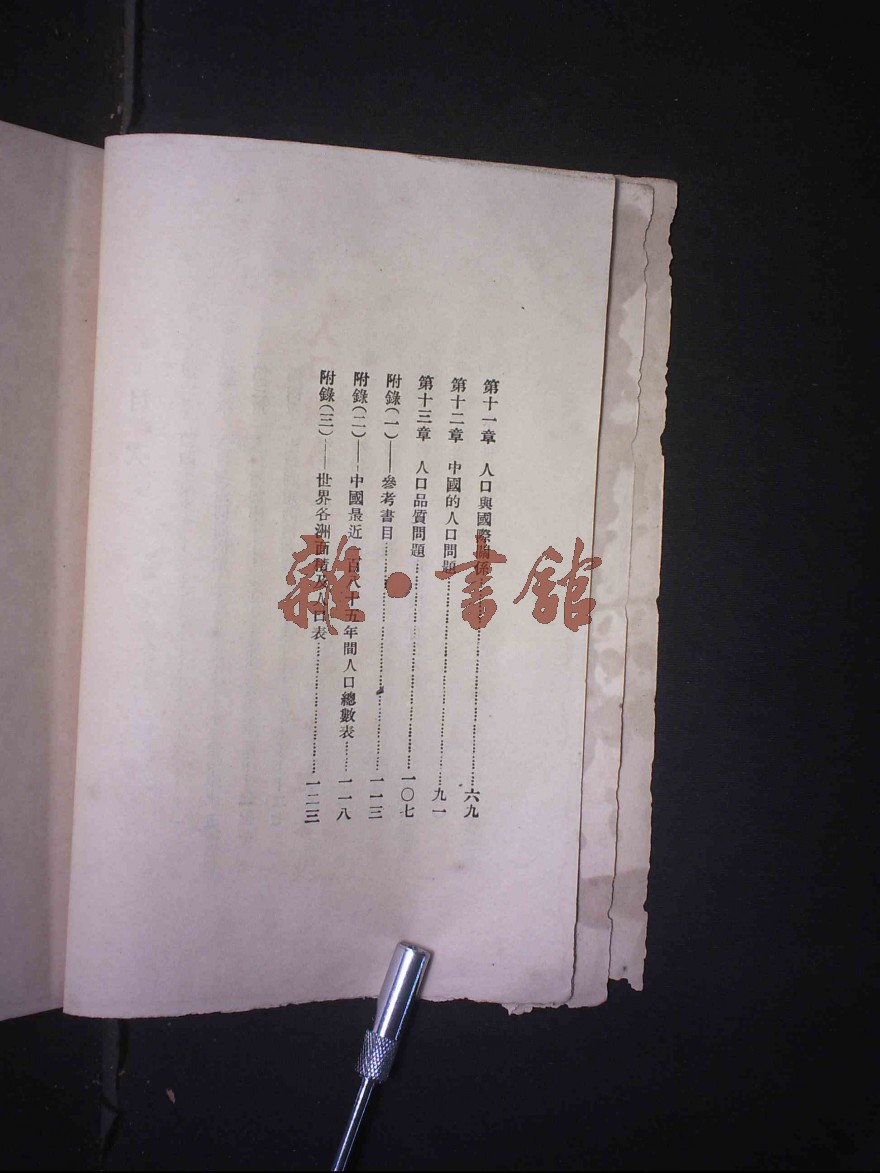 第十一章 人口與國際關係……六九
第十二章 中國的人口問題……九一
第十三章 人口品質問題……一〇七
附錄(一)——參考書目……一一三
附錄(二)——中國最近一百八十五年間人口總數表……一一八
附錄(三)——世界各洲面積及人口表……一二三
雜·書館